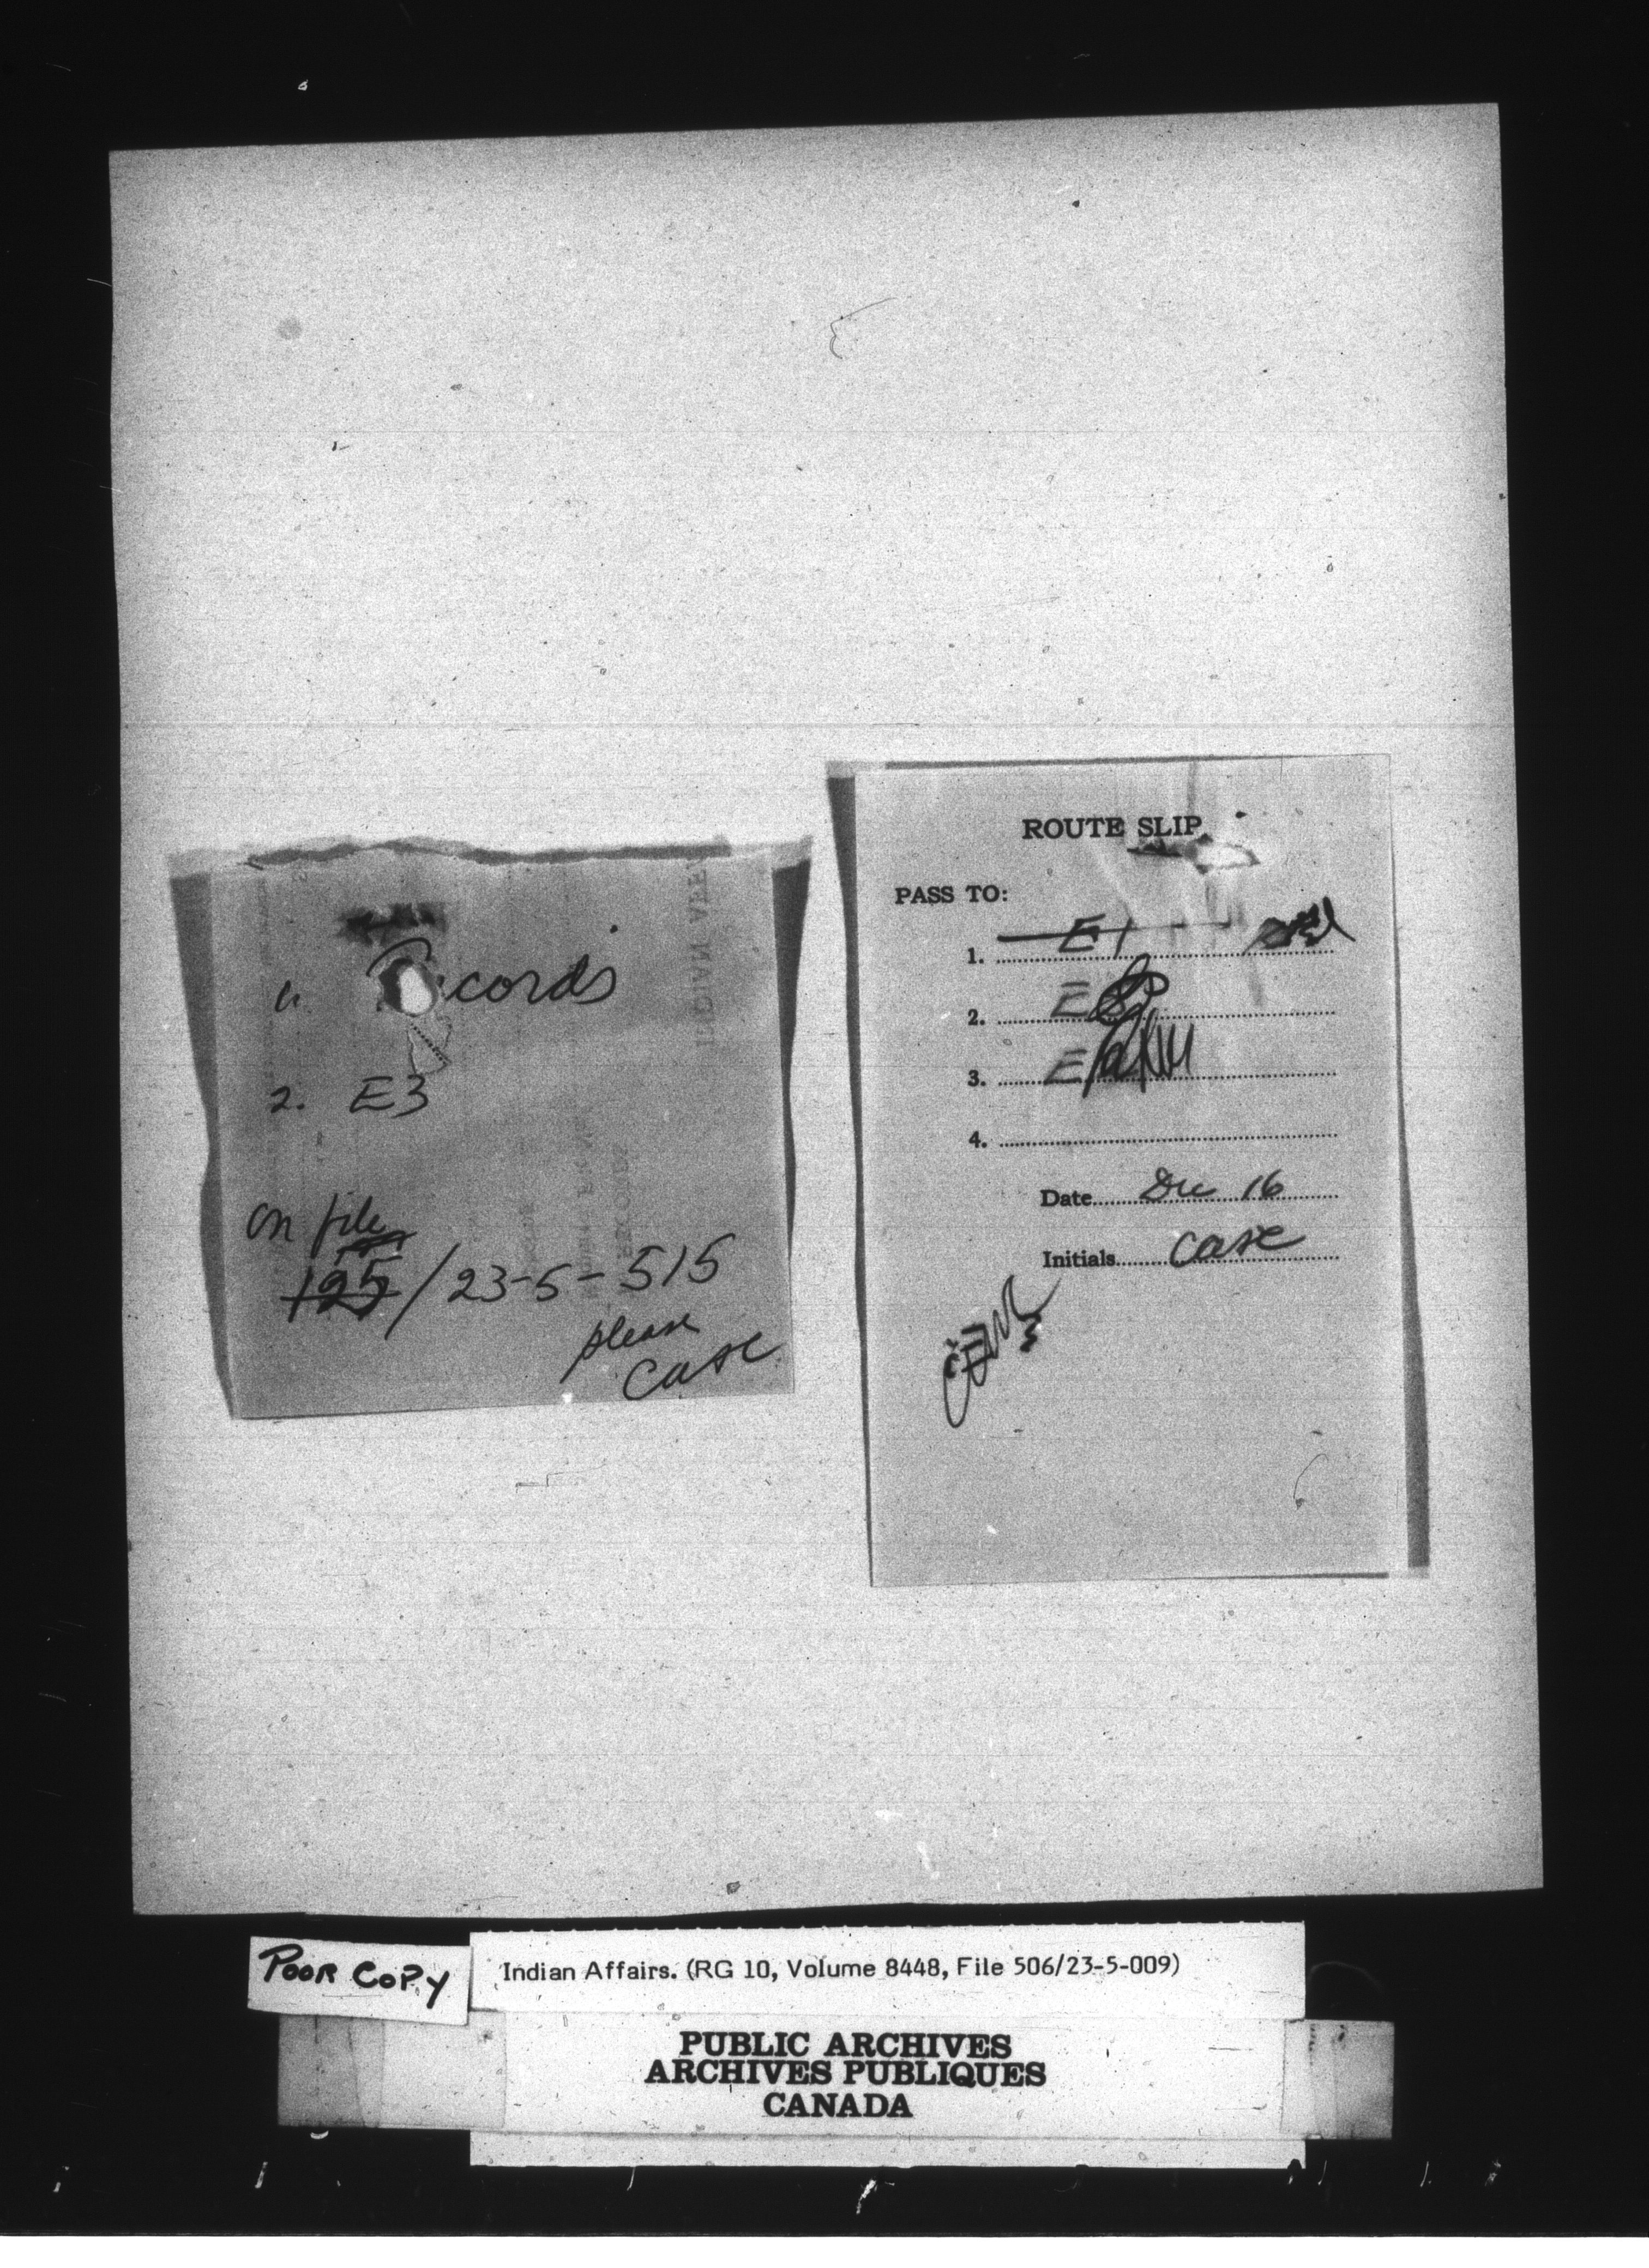 1. Records
2. E3
on file
125/23-5-515
please
case
ROUTE SLIP
PASS TO:
1. E1
2. E
3. E
4.
Date Dec 16
Initials case
POOR COPY
Indian Affairs. (RG 10, Volume 8448, File 506/23-5-009)
PUBLIC ARCHIVES
ARCHIVES PUBLIQUES
CANADA